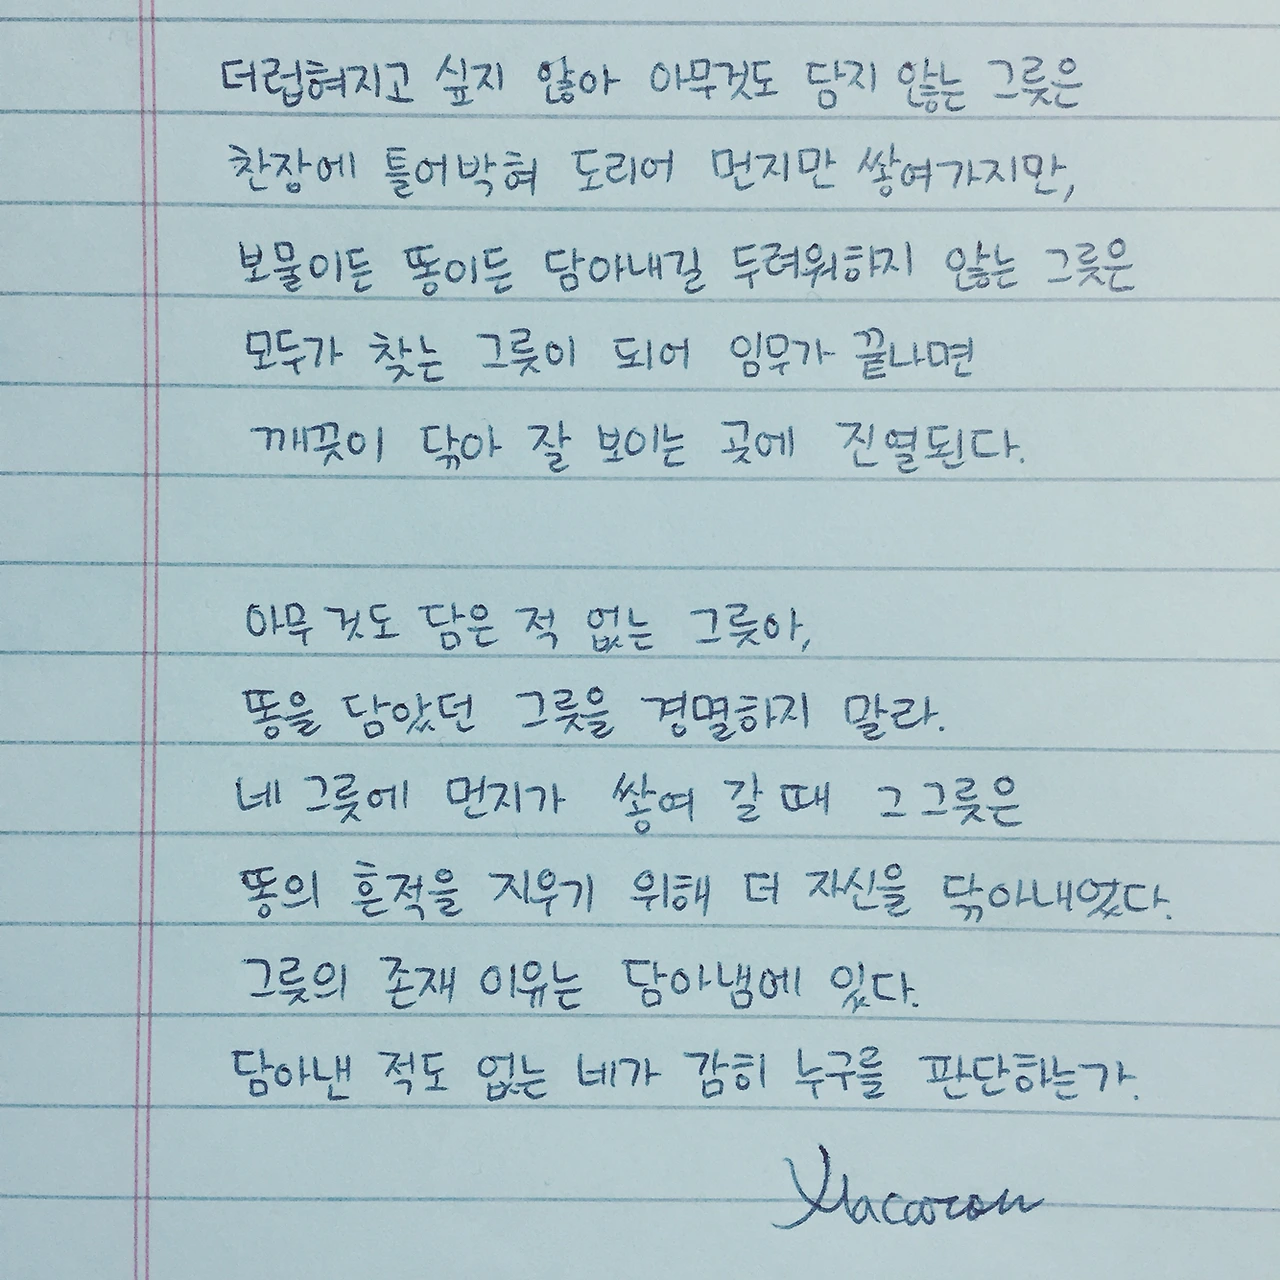 더럽혀지고 싶지 않아 아무것도 담지 않는 그릇은
찬장에 틀어박혀 도리어 먼지만 쌓여가지만,
보물이든 똥이든 담아내길 두려워하지 않는 그릇은
모두가 찾는 그릇이 되어 임무가 끝나면
깨끗이 닦아 잘 보이는 곳에 진열된다.
아무것도 담은 적 없는 그릇아,
똥을 담았던 그릇을 경멸하지 말라.
네 그릇에 먼지가 쌓여 갈 때 그 그릇은
똥의 흔적을 지우기 위해 더 자신을 닦아내었다.
그릇의 존재 이유는 담아냄에 있다.
담아낸 적도 없는 네가 감히 누구를 판단하는가.
Macaron